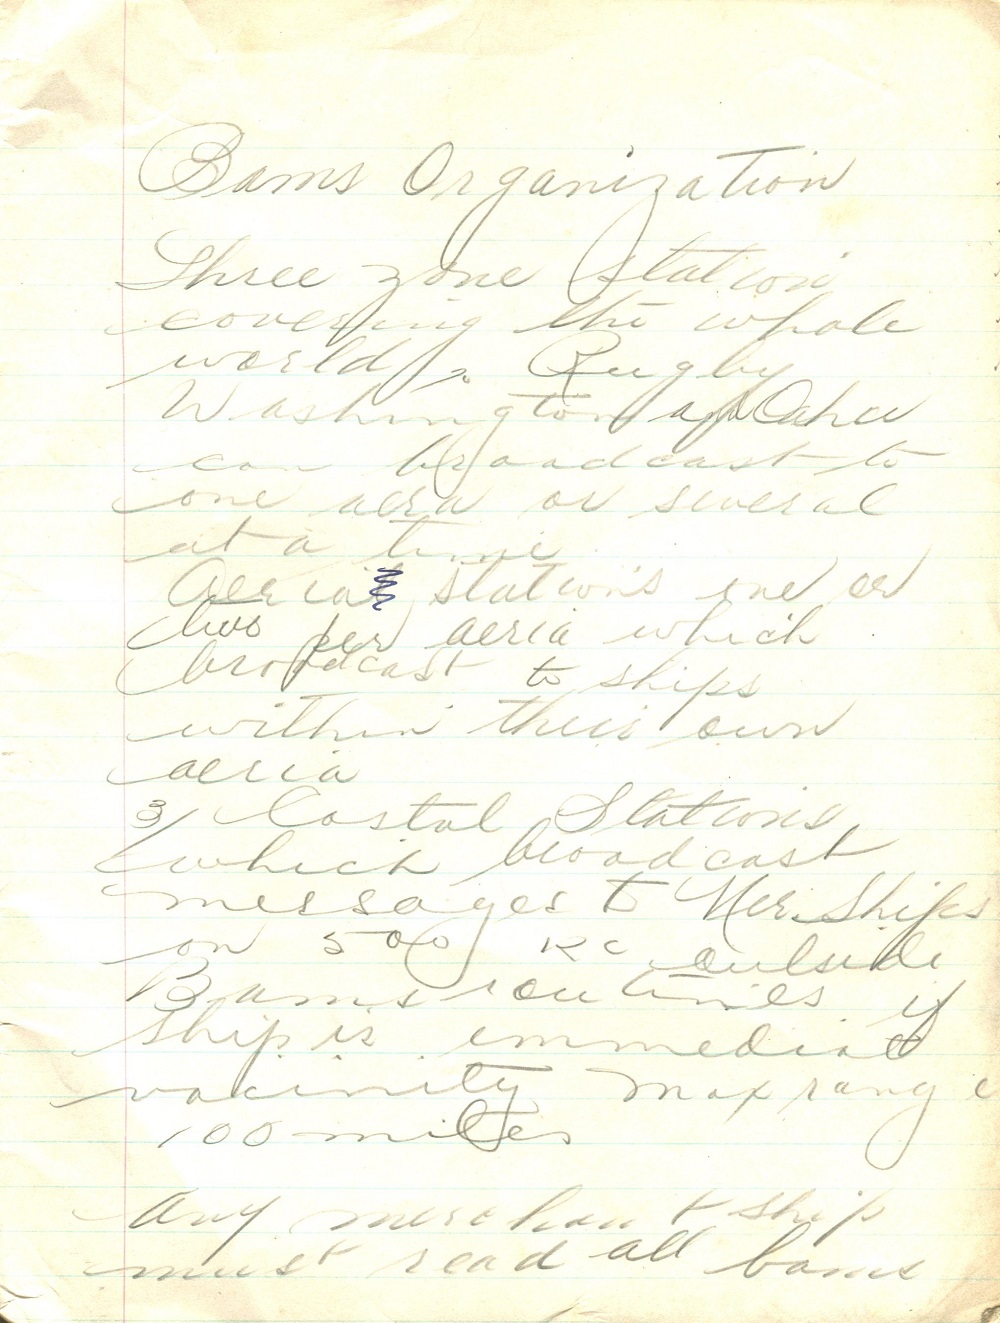 Bams Organization
Three zone station
covering the whole
world, Rugby
Washington Oahu
can broadcast to
one aera or several
at a time
Aeria stations one or
two per aeria which
broadcast to ships
within their own
aeria
3/ Costal Stations
which broadcast
messages to Mer. Ships
on 500 KC outside
Bams routines if
ship is immediat
vacinity max range
100 miles
Any merchant ship
must read all bams